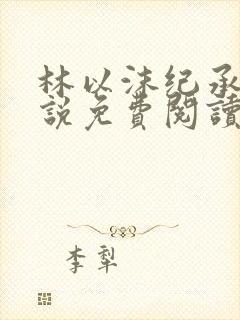 林以沫纪承
說免費閱讀
李犁